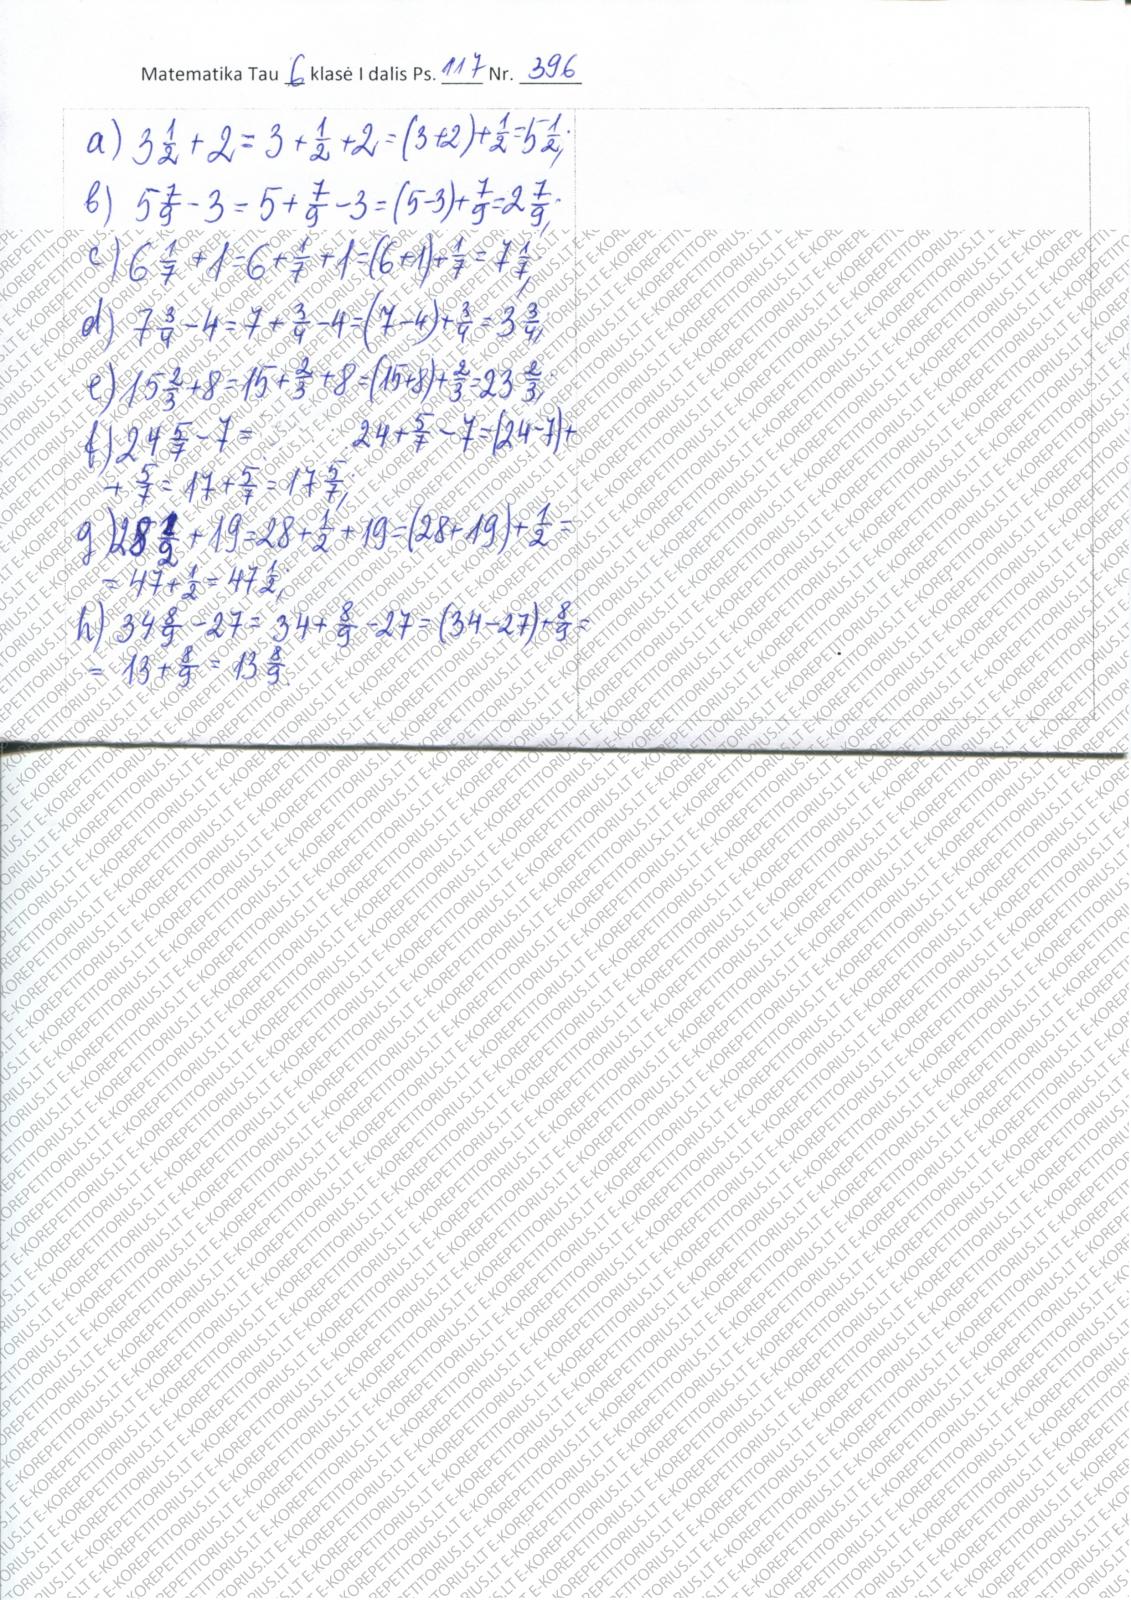 Matematika Tau 6 klasė I dalis Ps. 117 Nr. 396
a) 3 1/2 + 2 = 3 + 1/2 + 2 = (3+2) + 1/2 = 5 1/2;
b) 5 7/9 - 3 = 5 + 7/9 - 3 = (5-3) + 7/9 = 2 7/9;
c) 6 1/7 + 1 = 6 + 1/7 + 1 = (6+1) + 1/7 = 7 1/7;
d) 7 3/4 - 4 = 7 + 3/4 - 4 = (7-4) + 3/4 = 3 3/4;
e) 15 2/3 + 8 = 15 + 2/3 + 8 = (15+8) + 2/3 = 23 2/3;
f) 24 5/7 - 7 = 24 + 5/7 - 7 = (24-7) +
+ 5/7 = 17 + 5/7 = 17 5/7;
g) 28 1/2 + 19 = 28 + 1/2 + 19 = (28+19) + 1/2 =
= 47 + 1/2 = 47 1/2;
h) 34 8/9 - 27 = 34 + 8/9 - 27 = (34-27) + 8/9 =
= 13 + 8/9 = 13 8/9.
E-KOREPETITORIUS.LT